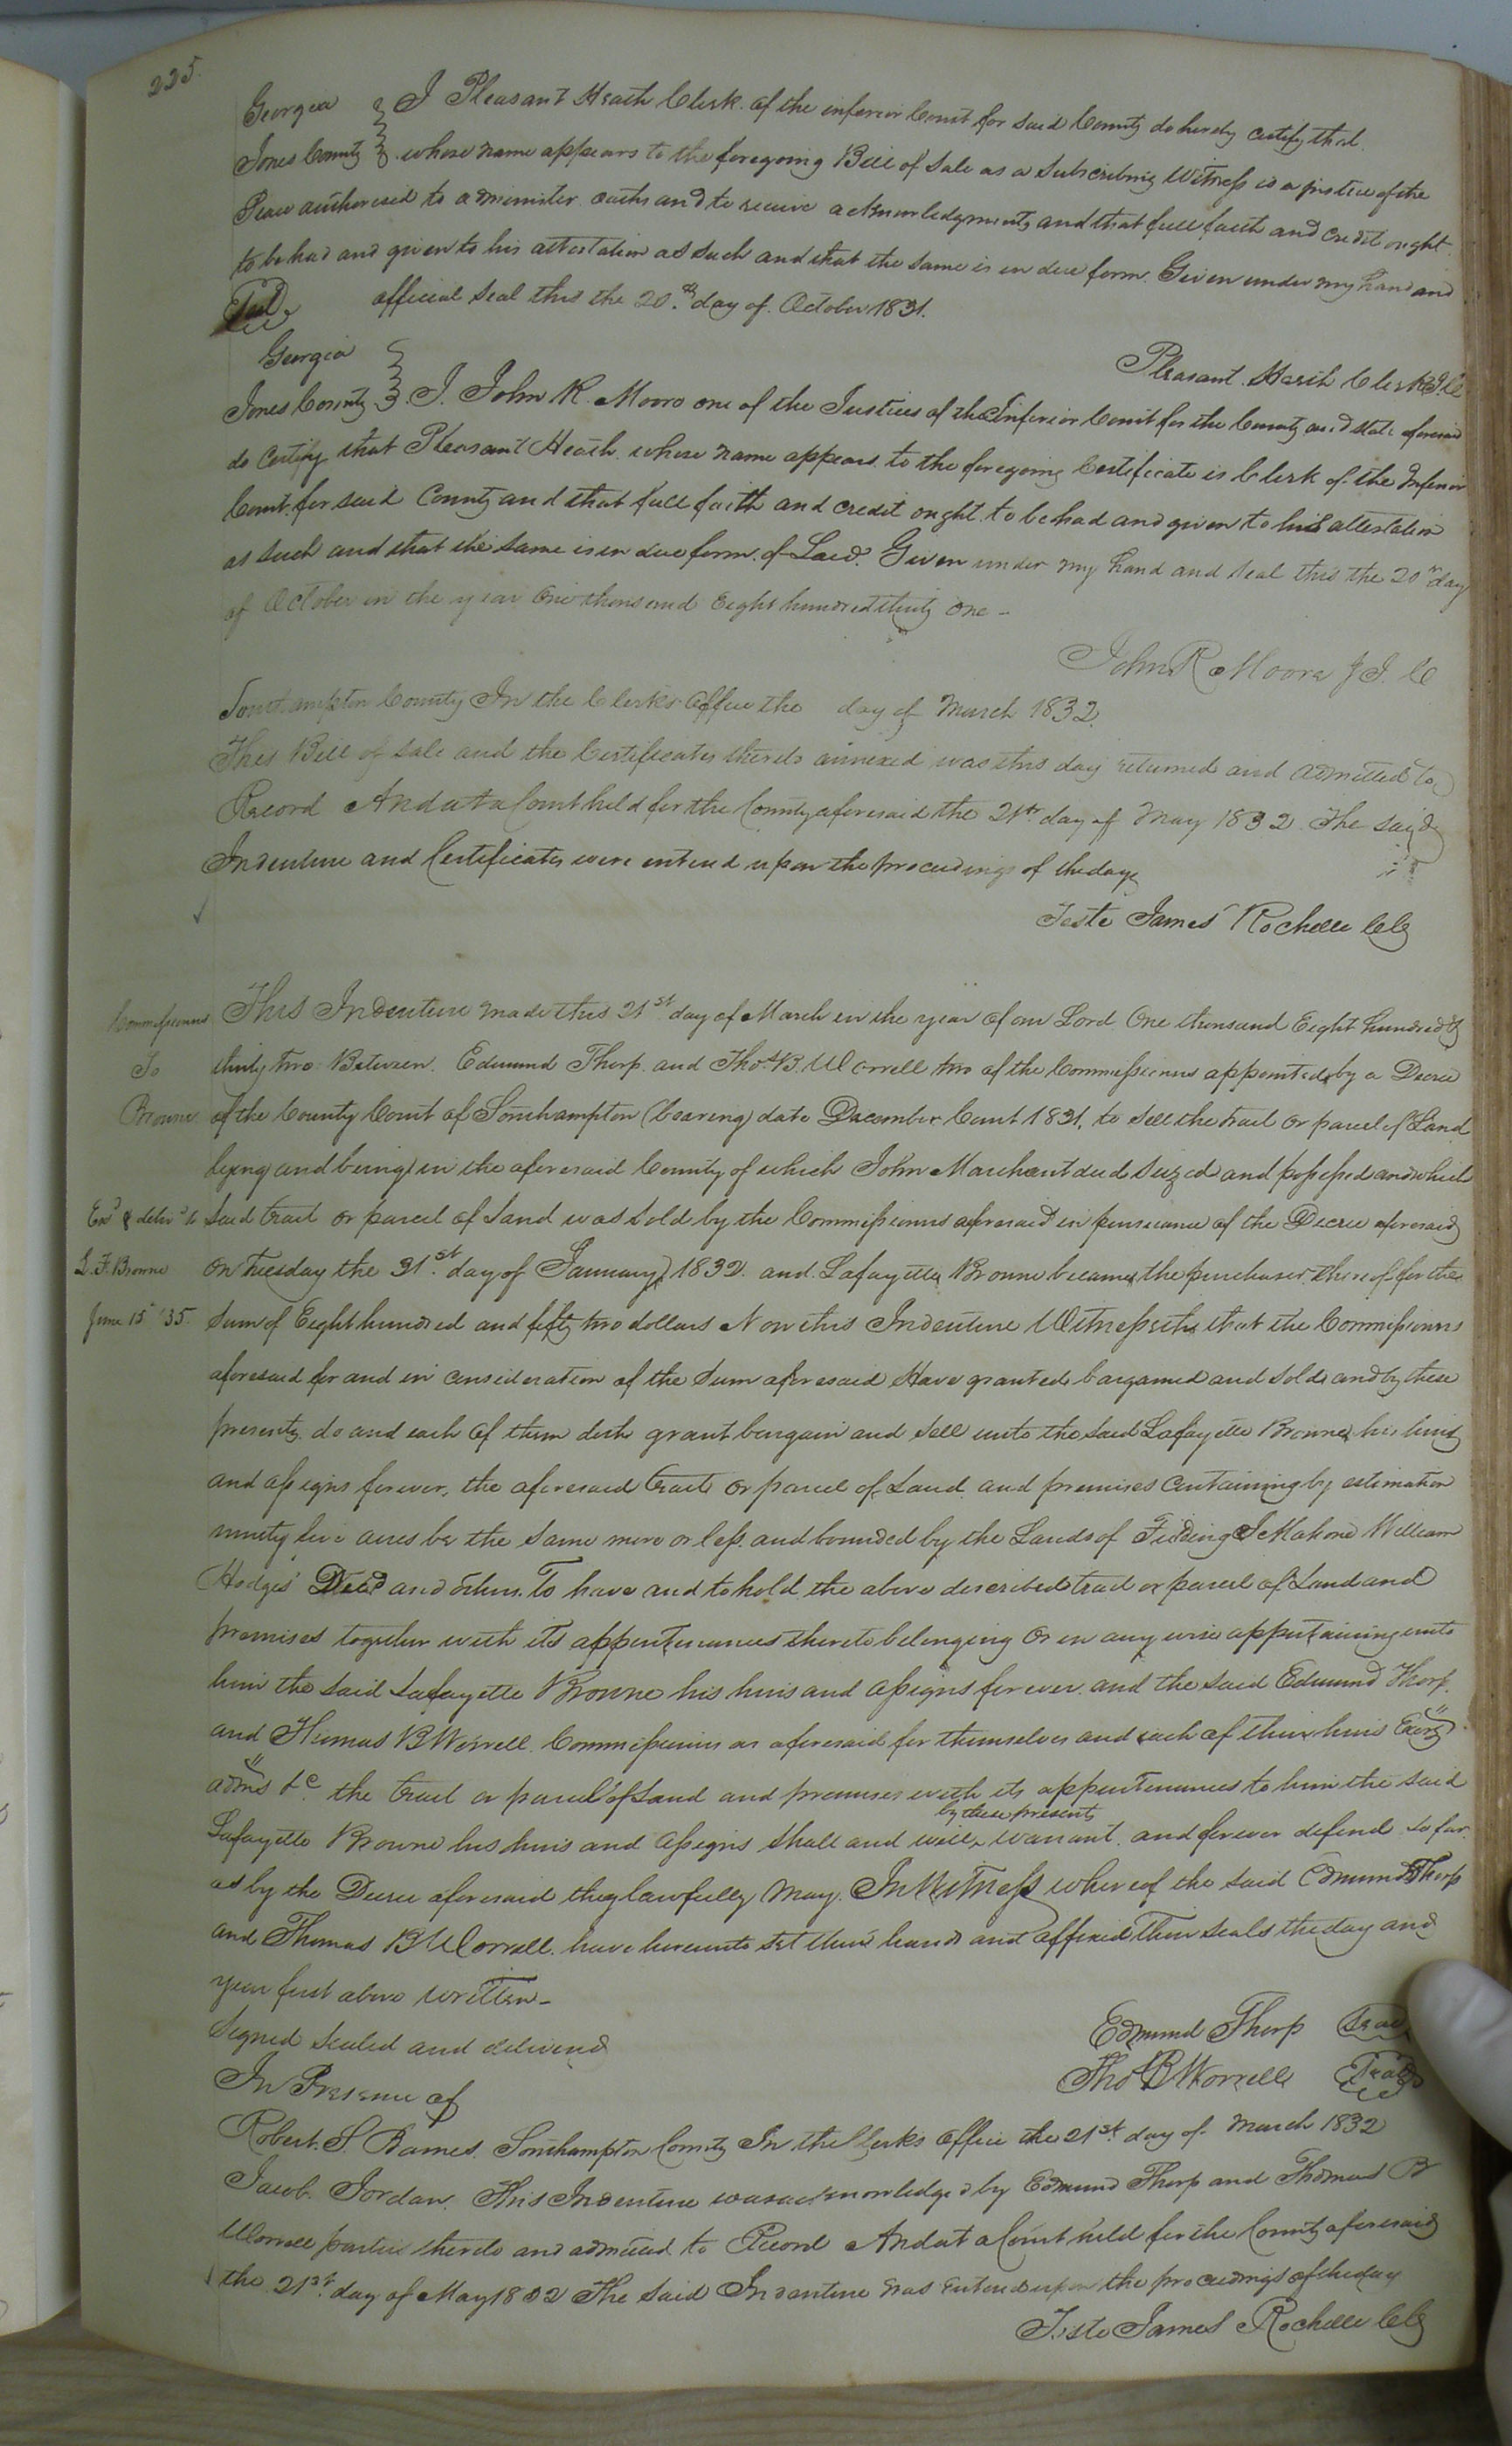 225.
Georgia } I Pleasant Heath Clerk of the inferior Court for said County do hereby certify that
Jones County } whose name appears to the foregoing Bill of Sale as a subscribing Witness is a justice of the
Peace authorised to administer oaths and to receive acknowledgments and that full faith and credit ought
to be had and given to his attestation as such and that the same is in due form. Given under my hand and
Seal official seal this the 20th day of October 1831.
Pleasant Heath Clerk I.C
Georgia
Jones County } I. John R. Moore one of the Justices of the Inferior Court for the County and state aforesaid
do certify that Pleasant Heath whose name appears to the foregoing Certificate is Clerk of the Inferior
Court for said County and that full faith and credit ought to be had and given to his attestation
as such and that the same is in due form of Law. Given under my hand and seal this the 20th day
of October in the year One thousand Eight hundred thirty one -
John R Moore J I. C
Southampton County In the Clerks Office the day of March 1832.
This Bill of Sale and the Certificates thereto annexed was this day returned and admitted to
Record And at a Court held for the County aforesaid the 21st day of May 1832 The said
Indenture and Certificates were entered upon the proceedings of the day
Teste James Rochelle CC
Commissioners
To
Browne
Exd & delivd to
L. F. Browne
June 15 '35
This Indenture made this 21st day of March in the year of our Lord One thousand Eight hundred &
thirty two Between Edmund Thorp and Thos. B. Worrell two of the Commissioners appointed by a Decree
of the County Court of Southampton (bearing) date December Court 1831, to sell the tract or parcel of Land
lying and being in the aforesaid County of which John Marchant died seized and possessed and which
said tract or parcel of Land was sold by the Commissioners aforesaid in pursuance of the Decree aforesaid
on Tuesday the 31st day of January 1832 and Lafayette Browne became the purchaser thereof for the
sum of Eight hundred and fifty two dollars Now this Indenture Witnesseth that the Commissioners
aforesaid for and in consideration of the sum aforesaid Have granted bargained and sold and by these
presents do and each of them doth grant bargain and sell unto the said Lafayette Browne his heirs
and assigns forever, the aforesaid tract or parcel of Land and premises containing by estimation
ninety five acres be the same more or less and bounded by the Lands of Fielding J Mahone William
Hodges' Decd and others. To have and to hold the above described tract or parcel of Land and
premises together with its appurtenances thereto belonging or in any wise appertaining unto
him the said Lafayette Browne his heirs and assigns forever and the said Edmund Thorp
and Thomas B Worrell Commissioners as aforesaid for themselves and each of their heirs Exors
admrs &c the tract or parcel of Land and premises with its appurtenances to him the said
Lafayette Browne his heirs and assigns shall and will ^ by these presents warrant and forever defend so far
as by the Decree aforesaid they lawfully may. In Witness whereof the said Edmund Thorp
and Thomas B Worrell have hereunto set their hands and affixed their seals the day and
year first above written -
Signed Sealed and delivered
In Presence of
Edmund Thorp Seal
Thos B Worrell Seal
Robert S. Barnes. Southampton County In the Clerks Office the 21st day of March 1832
Jacob Jordan. This Indenture was acknowledged by Edmund Thorp and Thomas B
Worrell parties thereto and admitted to Record And at a Court held for the County aforesaid
the 21st day of May 1832 The said Indenture was entered upon the proceedings of the day
Teste James Rochelle CC